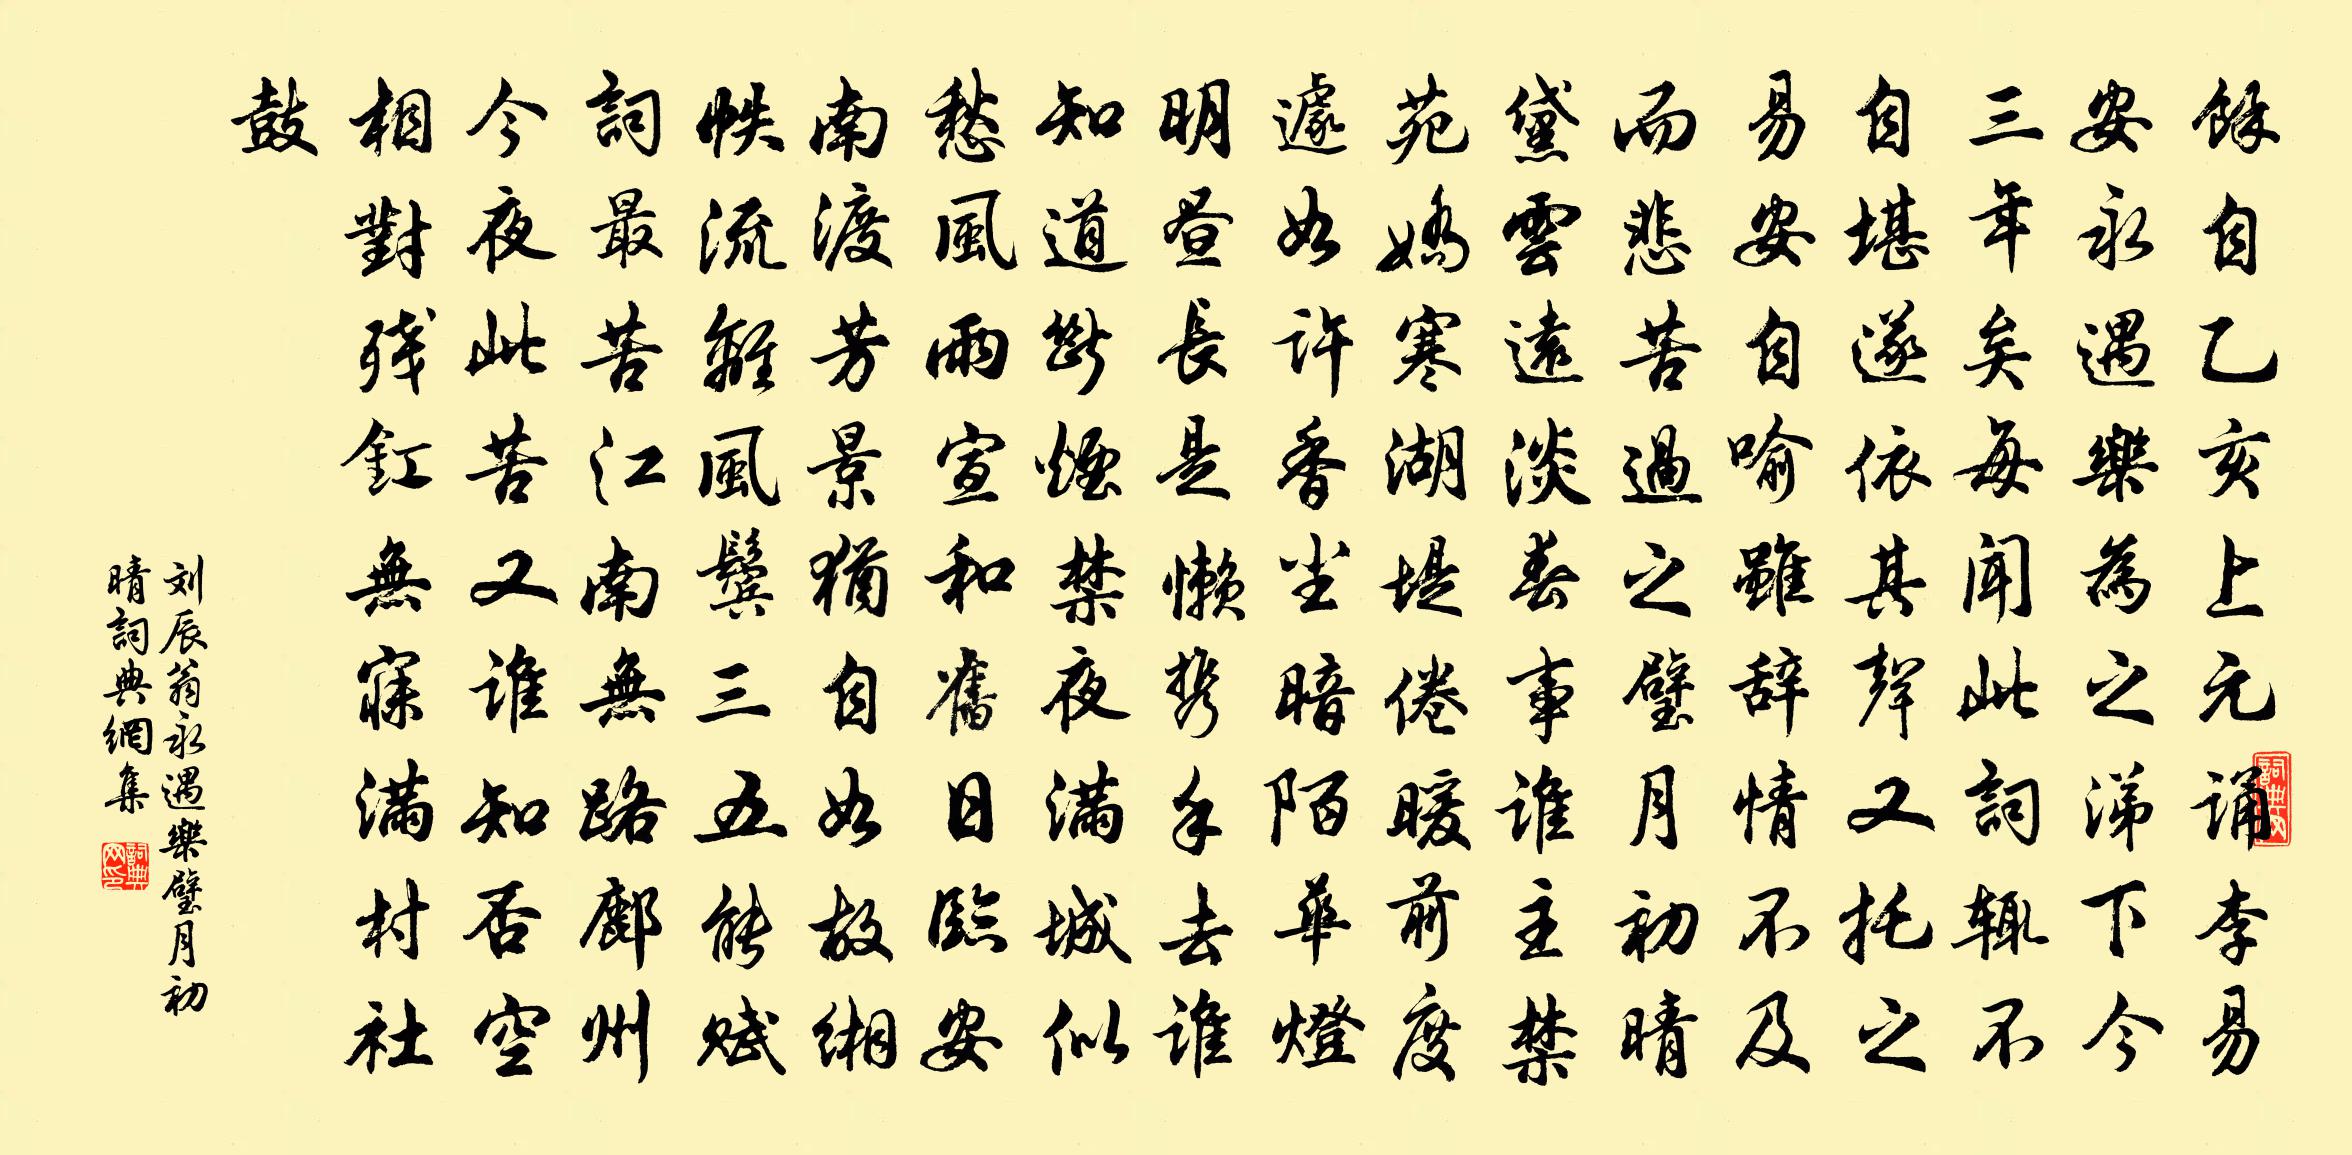 餘自乙亥上元誦李易
安永遇樂為之涕下今
三年矣每聞此詞輒不
自堪遂依其聲又托之
易安自喻雖辞情不及
而悲苦過之璧月初晴
黛雲遠淡春事誰主禁
苑嬌寒湖堤倦暖前度
遽如許香尘暗陌華燈
明昼長是懶携手去誰
知道斷煙禁夜滿城似
愁風雨宣和舊日臨安
南渡芳景猶自如故缃
帙流離風鬟三五能赋
詞最苦江南無路鄜州
今夜此苦又誰知否空
相對残釭無寐滿村社
鼓
刘辰翁永遇樂璧月初
晴詞典網集